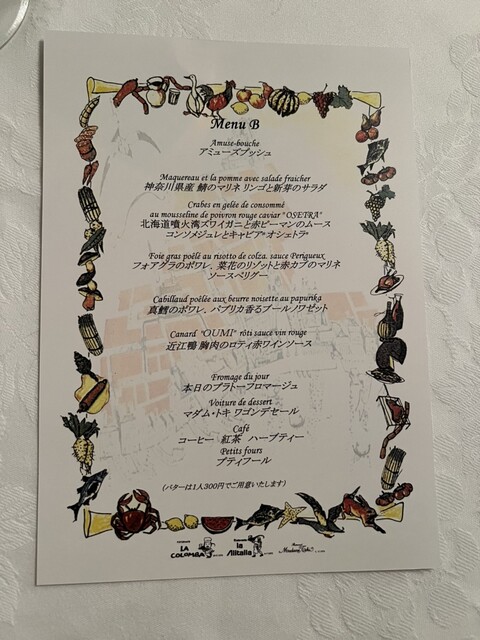 Menu B
Amuse-bouche
アミューズブッシュ
Maquereau et la pomme avec salade fraicher
神奈川県産 鯖のマリネ リンゴと新芽のサラダ
Crabes en gelée de consommé
au mousseline de poivron rouge caviar "OSETRA"
北海道噴火湾ズワイガニと赤ピーマンのムース
コンソメジュレとキャビア"オシェトラ"
Foie gras poêlé au risotto de colza. sauce Perigueux
フォアグラのポワレ、菜花のリゾットと赤カブのマリネ
ソースペリグー
Cabillaud poêlée aux beurre noisette au papurika
真鱈のポワレ、パプリカ香るブールノワゼット
Canard "OUMI" rôti sauce vin rouge
近江鴨 胸肉のロティ赤ワインソース
Fromage du jour
本日のプラトーフロマージュ
Voiture de dessert
マダム・トキ ワゴンデセール
Café
コーヒー 紅茶 ハーブティー
Petits fours
プティフール
(バターは1人300円でご用意いたします)
LA COLOMBA
la Alitalia